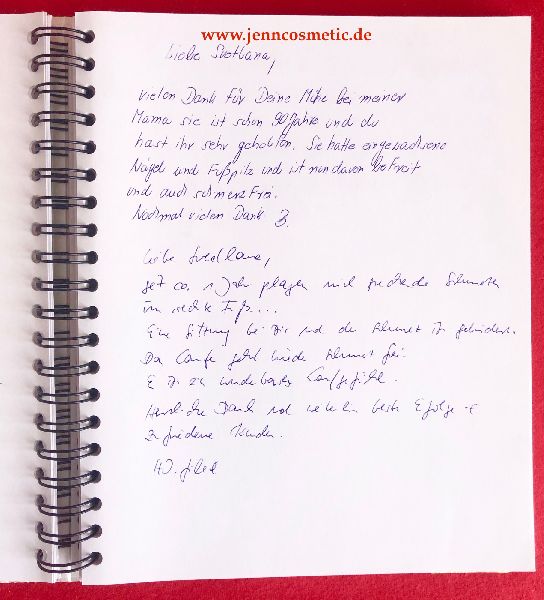 www.jenncosmetic.de
Liebe Svetlana,
vielen Dank für Deine Mühe bei meiner
Mama sie ist schon 90 Jahre und du
hast ihr sehr geholfen. Sie hatte eingewachsene
Nägel und Fußpilz und ist nun davon befreit
und auch schmerzfrei.
Nochmal vielen Dank
Liebe Svetlana,
seit ca. 1 Jahr plagen mich stechende Schmerzen
im rechte Fuß...
Eine Sitzung bei Dir und der Schmerz ist gelindert.
Das Laufen geht wieder schmerzfrei.
Es ist ein wunderbares Laufgefühl.
Herzlichen Dank und weiterhin beste Erfolge
zufriedene Kunden.